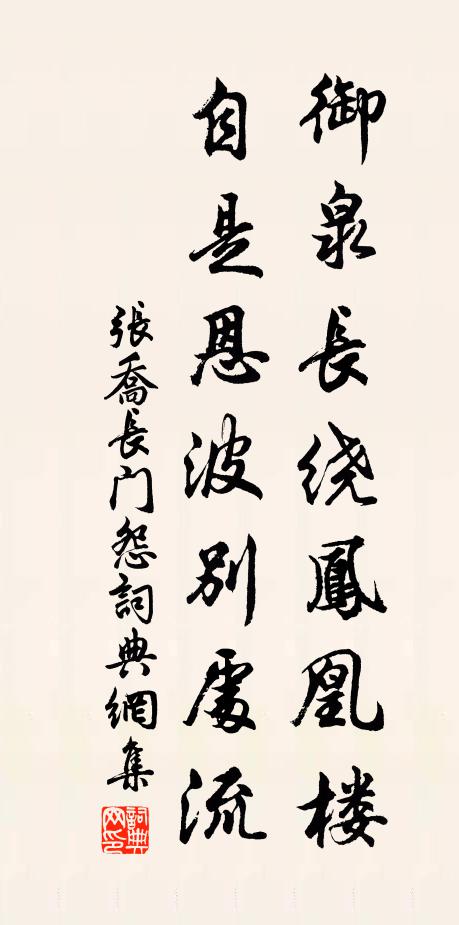 御泉長绕鳳凰楼
自是恩波別處流
張喬長门怨詞典網集
詞典网印